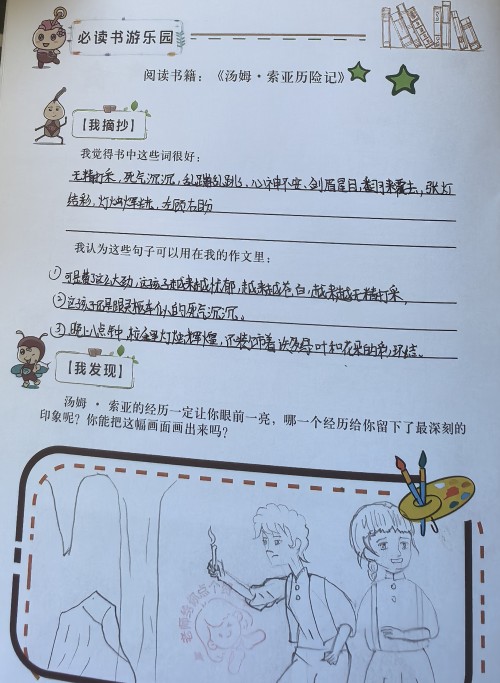 必读书游乐园
阅读书籍：《汤姆·索亚历险记》
【我摘抄】
我觉得书中这些词很好：
无精打采，死气沉沉，乱蹦乱跳，心神不安，剑眉星目，翻来覆去，张灯
结彩，灯灿辉煌，左顾右盼
我认为这些句子可以用在我的作文里：
①可是费了这么大劲，这孩子越来越忧郁，越来越苍白，越来越无精打采。
②这孩子还是跟灵柩车似的死气沉沉。
③晚上八点钟，校舍里灯灿辉煌，还装饰着许多绿叶和花朵的彩环结。
【我发现】
汤姆·索亚的经历一定让你眼前一亮，哪一个经历给你留下了最深刻的
印象呢？你能把这幅画面画出来吗？
老师给你点个赞